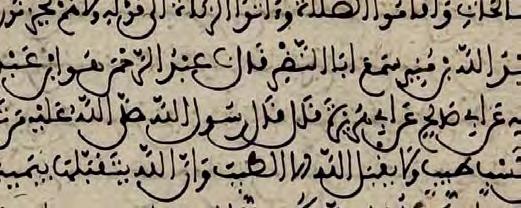 الحات واقاموا الصلاة وءاتوا الزكاة الى قوله ولا هم يحزنو
بد الله بن منير سمع ابا النضر قال عبد الرحمن هو ابن عبد
يه عن ابي صالح عن ابي هريرة قال قال رسول الله صلى الله عليه من
كسب طيب ولا يقبل الله الا الطيب وان الله يتقبلها بيمينه